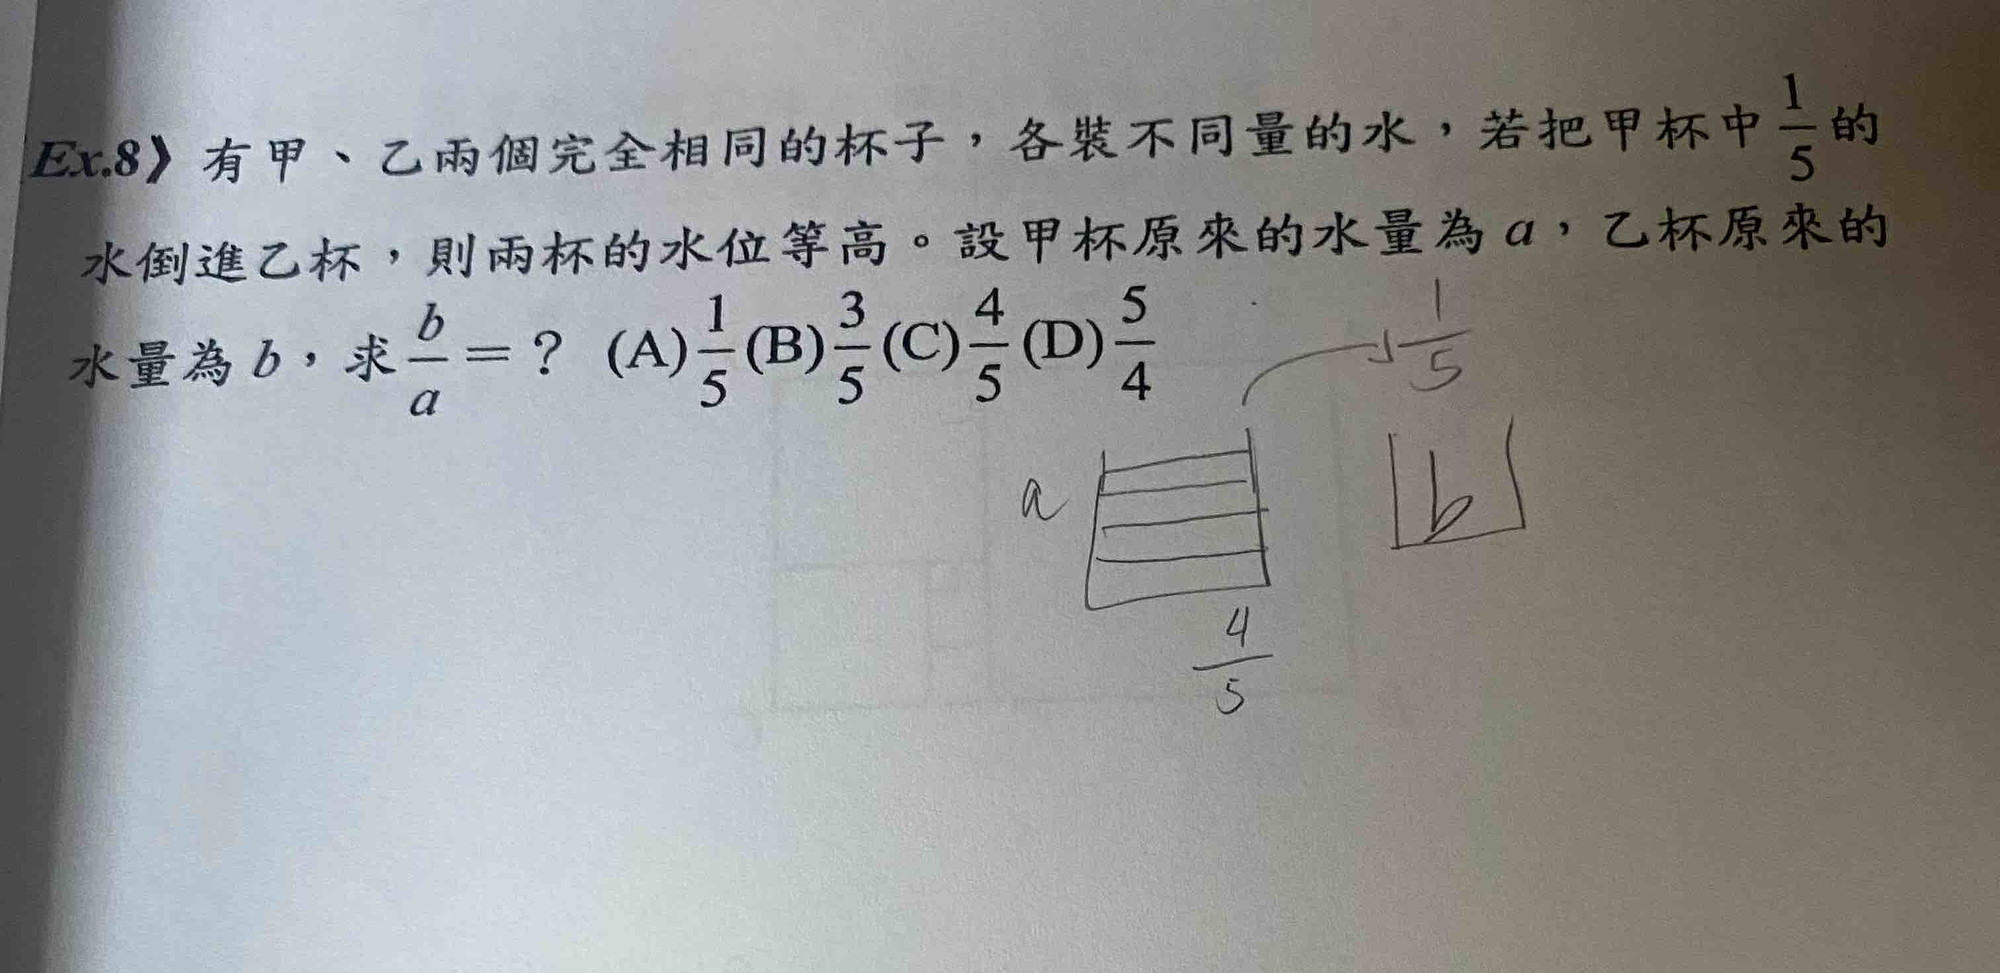 Ex.8》有甲、乙兩個完全相同的杯子，各裝不同量的水，若把甲杯中1/5的
水倒進乙杯，則兩杯的水位等高。設甲杯原來的水量為a，乙杯原來的
水量為b，求b/a＝？ (A)1/5(B)3/5(C)4/5(D)5/4
1/5
a
b
4/5